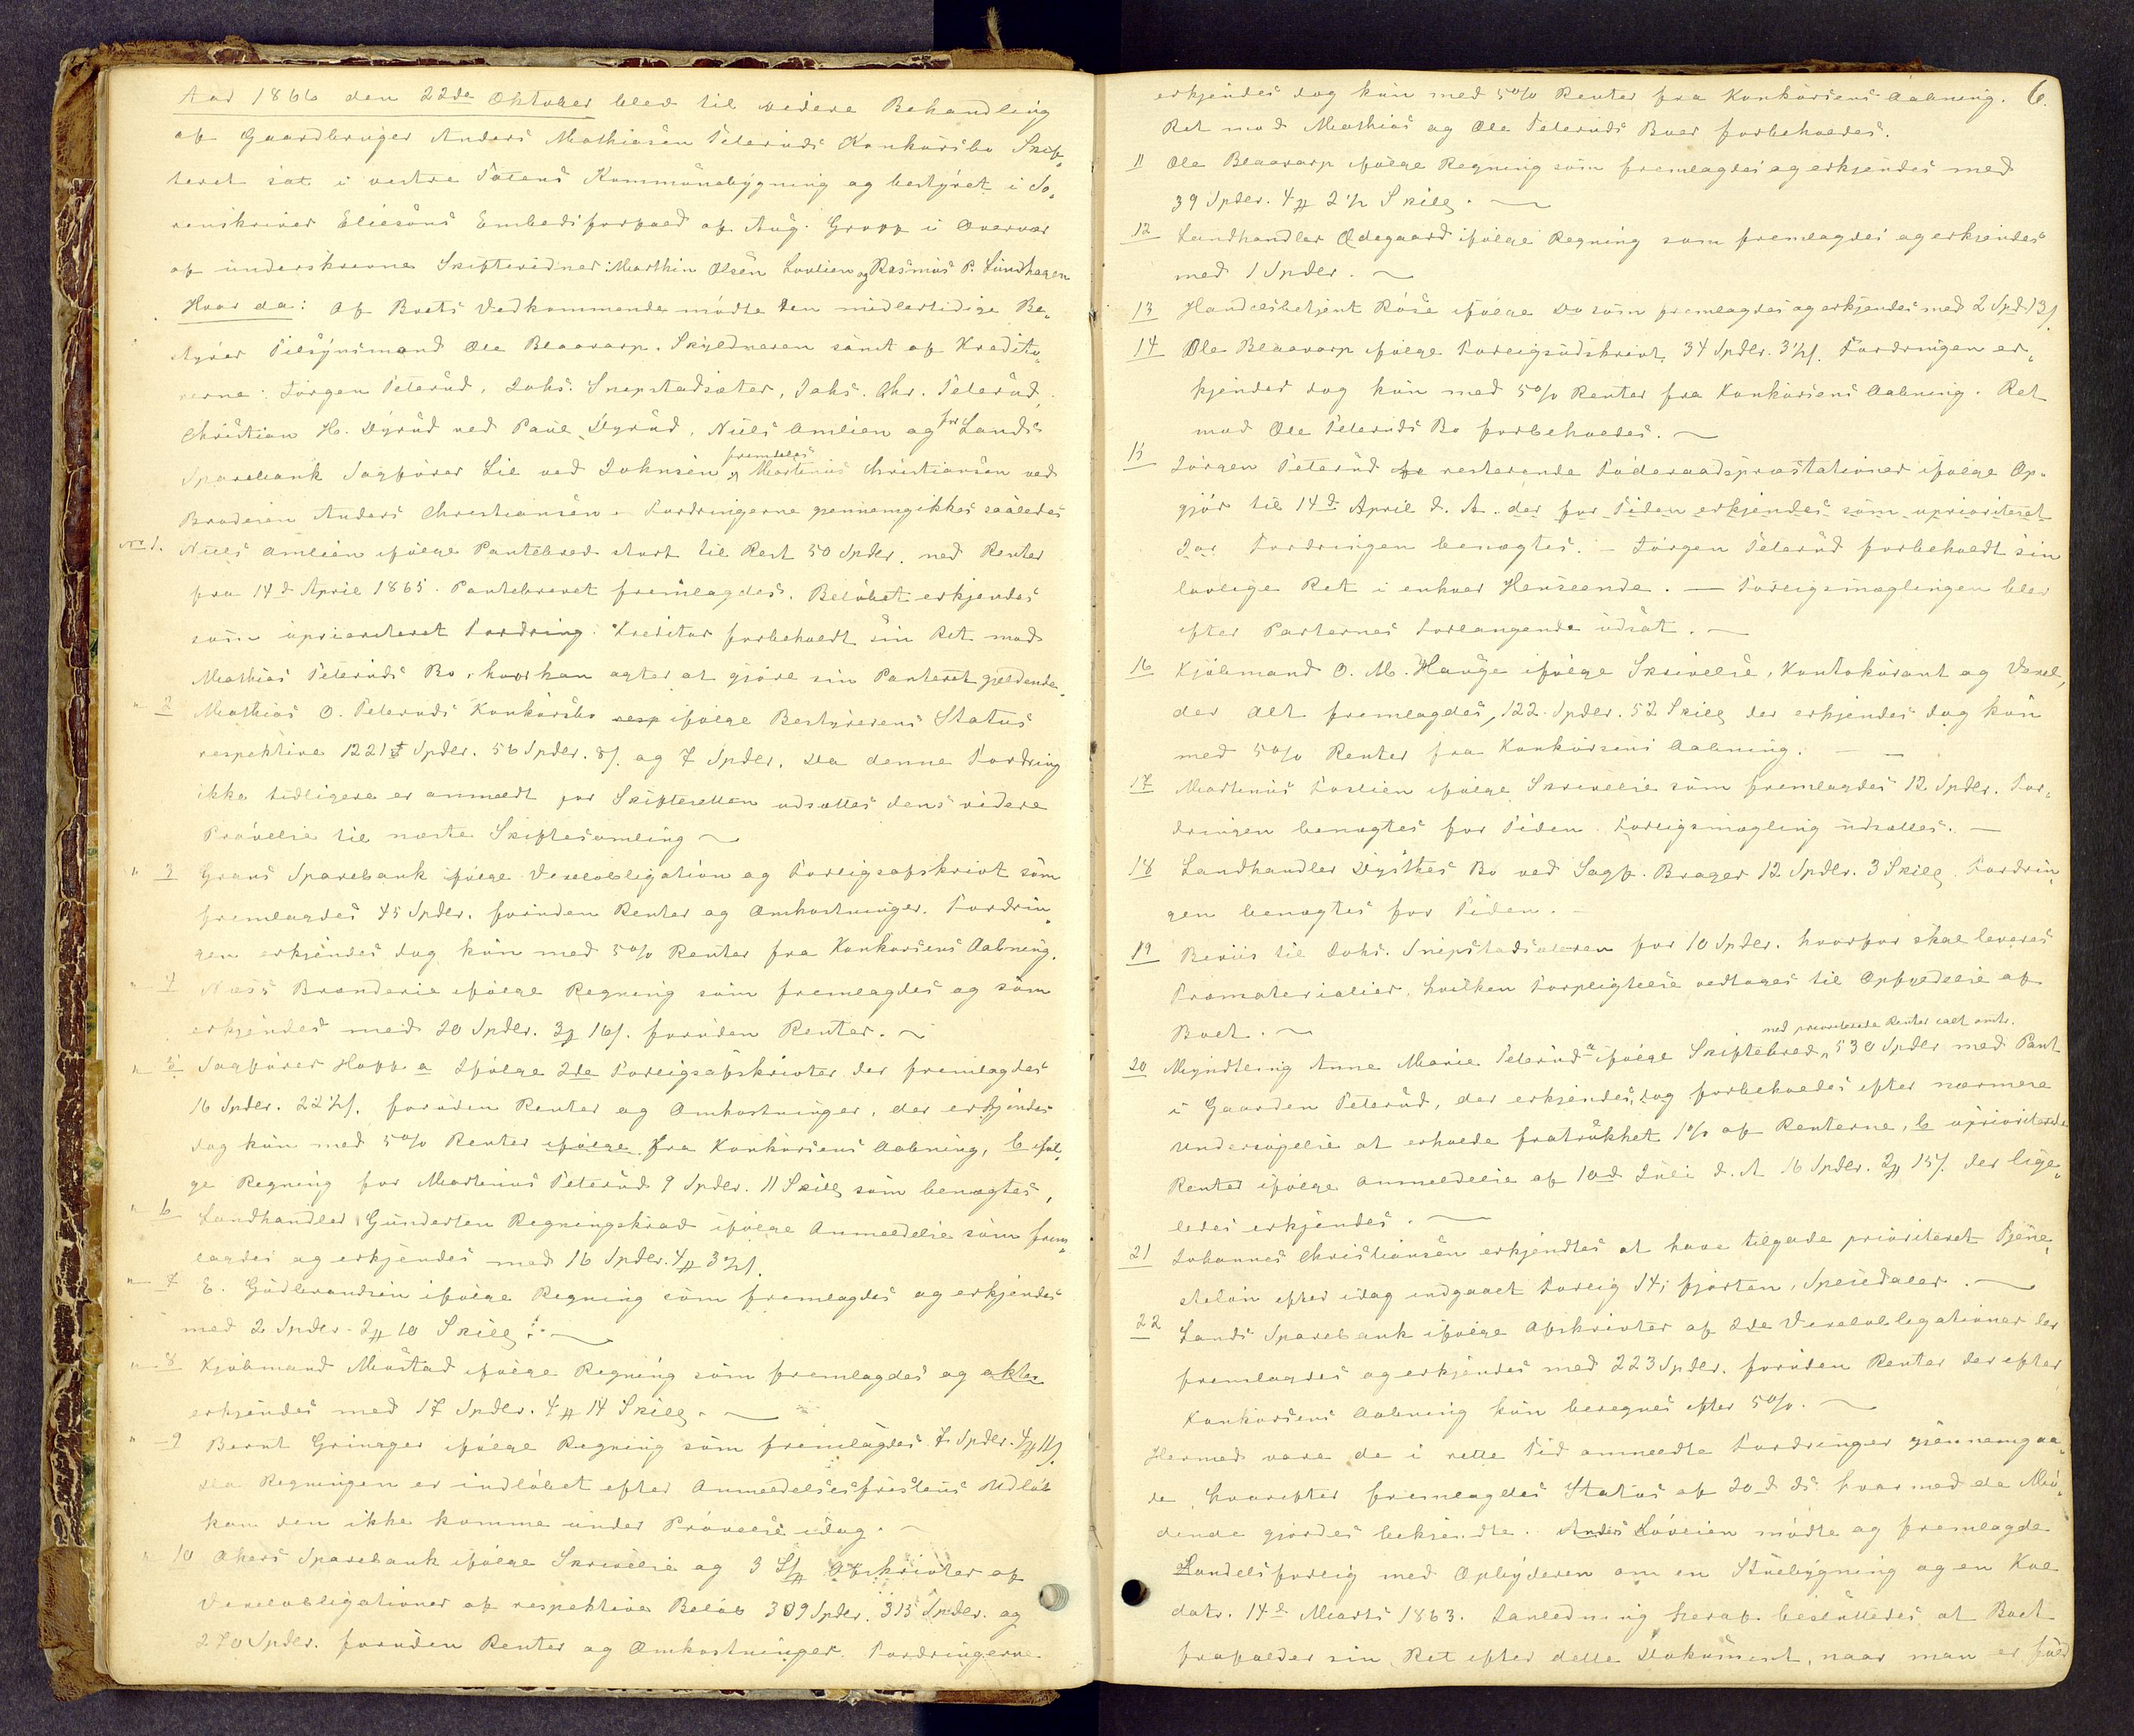 Aar 1866 den 22de Oktober blev til videre Behandling
af Gaardbruger Anders Mathiasen Teteruds Konkursbo Skif„
teret sat i vestre Totens Kommunebygning og bestyret i So„
renskriver Eliesons Embedsforfald af Aug. Gropp i Overvær
af underskrevne Skiftevidner: Marthin Olsen Lovlien og Rasmus P. Lundhagen
Hvor da: Af Boets Vedkommende mødte den midlertidige Be„
styrer Tilsynsmand Ole Blaavarp, Skyldneren samt af Kredito„
rerne: Jørgen Teterud, Johs. Snepstadsæter, Johs. Chr. Teterud,
Christian H. Dyrud ved Paul Dyrud, Niels Amlien og for Lands
Sparebank Sagfører Lie ved Johnsen, fremdeles Martinus Christiansen ved
Broderen Anders Christiansen. Fordringerne gjennemgikkes saaledes
No 1. Niels Amlien ifølge Pantebrev stort til Rest 50 Spdlr. med Renter
fra 14d April 1865. Pantebrevet fremlagdes. Beløbet erkjendes
som uprioriteret Fordring. Kreditor forbeholdt sin Ret mod
Mathias Teteruds Bo, hvor han agter at gjøre sin Panteret gjeldende.
" 2 Mathias O. Teteruds Konkursbo resp ifølge Bestyrerens Status
respektive 1221 Spdlr. 56 Spdlr. 8ſ. og 7 Spdlr. Da denne Fordring
ikke tidligere er anmeldt for Skifteretten udsættes dens videre
Prøvelse til næste Skiftesamling ~
" 3 Grans Sparebank ifølge Vexelobligation og Forligsafskrivt som
fremlagdes 45 Spdlr. foruden Renter og Omkostninger. Fordrin„
gen erkjendes dog kun med 5% Renter fra Konkursens Aabning.
" 4 Næss Brænderie ifølge Regning som fremlagdes og som
erkjendes med 20 Spdlr. 3 # 16ſ. foruden Renter. ~
" 5 Sagfører Hoff a Ifølge 2de Forligsafskrivter der fremlagdes
16 Spdlr. 22½ſ. foruden Renter og Omkostninger, der erkjendes
dog kun med 5% Renter ifølge fra Konkursens Aabning, b iføl„
ge Regning for Martinus Teterud 9 Spdlr. 11 Skill som benægtes,
" 6 Landhandler Gundersen Regningskrav ifølge Anmeldelse som frem„
lagdes og erkjendes med 16 Spdlr. 4 # 3½ſ.
" 7 E. Gudbrandsen ifølge Regning som fremlagdes og erkjendes
med 2 Spdlr. 2 # 10 Skill. ~
" 8 Kjøbmand Mustad ifølge Regning som fremlagdes og
erkjendes med 17 Spdlr. 4 # 14 Skill. ~
" 9 Bernt Grinager ifølge Regning som fremlagdes 7 Spdlr. 4 # 11ſ.
Da Regningen er indløbet efter Anmeldelsesfristens Udløb
kan den ikke komme under Prøvelse idag. ~
" 10 Akers Sparebank ifølge Skrivelse og 3 Afskrivter af
Vexelobligationer af respektive Beløb 309 Spdlr. 315 Spdlr. og
270 Spdlr. foruden Renter og Omkostninger. Fordringerne
6.
erkjendes dog kun med 5% Renter fra Konkursens Aabning.
Ret mod Mathias og Ole Teteruds Boer forbeholdes.
11 Ole Blaavarp ifølge Regning som fremlagdes og erkjendes med
39 Spdlr. 4 # 2½ Skill. ~
12 Landhandler Ødegaard ifølge Regning som fremlagdes og erkjendes
med 1 Spdlr. ~
13 Handelsbetjent Røise ifølge Do som fremlagdes og erkjendes med 2 Spd. 13ſ.
14 Ole Blaavarp ifølge Forligsudskrivt 34 Spdlr. 3½ſ. Fordringen er„
kjendes dog kun med 5% Renter fra Konkursens Aabning. Ret
mod Ole Teteruds Bo forbeholdes. ~
15 Jørgen Teterud for resterende Føderaadspræstationer ifølge Op„
gjør til 14d April d. A. der for Tiden erkjendes som uprioriteret
Fordringen benægtes. – Jørgen Teterud forbeholdt sin
lovlige Ret i enhver Henseende. — Forligsmæglingen blev
efter Parternes Forlangende udsat. ~
16 Kjøbmand O. M. Hauge ifølge Skrivelse, Kontokurant og Vexel,
der Alt fremlagdes, 122 Spdlr. 52 Skill der erkjendes dog kun
med 5% Renter fra Konkursens Aabning. —
17 Martinus Foslien ifølge Skrivelse som fremlagdes 12 Spdlr. For„
dringen benægtes for Tiden. Forligsmægling udsættes. —
18 Landhandler Dysthes Bo ved Sagf. Brager 12 Spdlr. 3 Skill. Fordrin„
gen benægtes for Tiden. –
19 Beviis til Johs. Snepstadsæteren for 10 Spdlr. hvorfor skal leveres
Træmaterialier, hvilken Forpligtelse vedtages til Opfyldelse af
Boet. ~
20 Myndtling Anne Marie Teterud a ifølge Skiftebrev, med prioriterede Renter 530 Spdlr med Pant
i Gaarden Teterud, der erkjendes, dog forbeholdes efter nærmere
Undersøgelse at erholde fratrukket 1% af Renterne, b uprioriterede
Renter ifølge Anmeldelse af 10d Juli d. A. 16 Spdlr. 2 # 15ſ. der lige„
ledes erkjendes. ~
21 Johannes Christiansen erkjendtes at have tilgode prioriteret Tjene„
steløn efter idag indgaaet Forlig 14, fjorten, Speciedaler. ~
22 Lands Sparebank ifølge Afskrivter af 2de Vexelobligationer der
fremlagdes og erkjendes med 223 Spdlr. foruden Renter der efter
Konkursens Aabning kun beregnes efter 5%. ~
Hermed vare de i rette Tid anmeldte Fordringer gjennemgaa„
de, hvorefter fremlagdes Status af 20d ds. hvormed de Mø„
dende gjordes bekjendte. Anders Løvlien mødte og fremlagde
Handelsforlig med Opbyderen om en Stuebygning og en
datr. 14d Marts 1863. I Anledning heraf besluttedes at Boet
frafalder sin Ret efter dette Dokument, naar man er